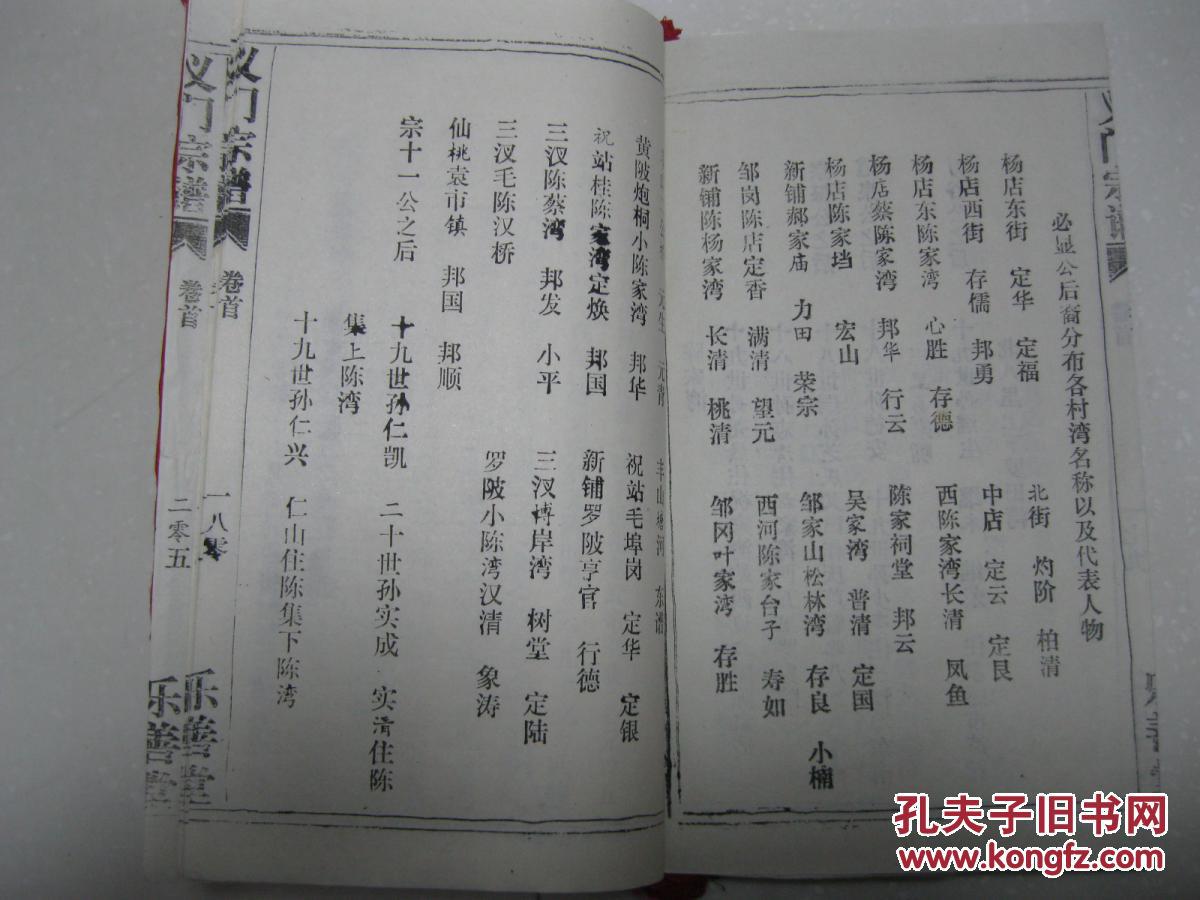 必显公后裔分布各村湾名称以及代表人物
杨店东街 定华 定福 北街 灼阶 柏清
杨店西街 存儒 邦勇 中店 定云 定艮
杨店东陈家湾 心胜 存德 西陈家湾长清 凤鱼
杨店蔡陈家湾 邦华 行云 陈家祠堂 邦云
杨店陈家垱 宏山 吴家湾 普清 定国
新铺郝家庙 力田 荣宗 邹家山松林湾 存良 小楠
邹岗陈店定香 满清 望元 西河陈家台子 寿如
新铺陈杨家湾 长清 桃清 邹冈叶家湾 存胜
黄陂炮桐小陈家湾 邦华 祝站毛埠岗 定华 定银
祝站桂陈家湾定焕 邦国 新铺罗陂亨官 行德
三汊陈蔡湾 邦发 小平 三汊塼岸湾 树堂 定陆
三汊毛陈汉桥 罗陂小陈湾汉清 象涛
仙桃袁市镇 邦国 邦顺
宗十一公之后 十九世孙仁凯 二十世孙实成 实清住陈
集上陈湾
十九世孙仁兴 仁山住陈集下陈湾
义门宗谱 卷首 一八零 乐善堂
义门宗谱 卷首 二零五 乐善堂
孔夫子旧书网
www.kongfz.com